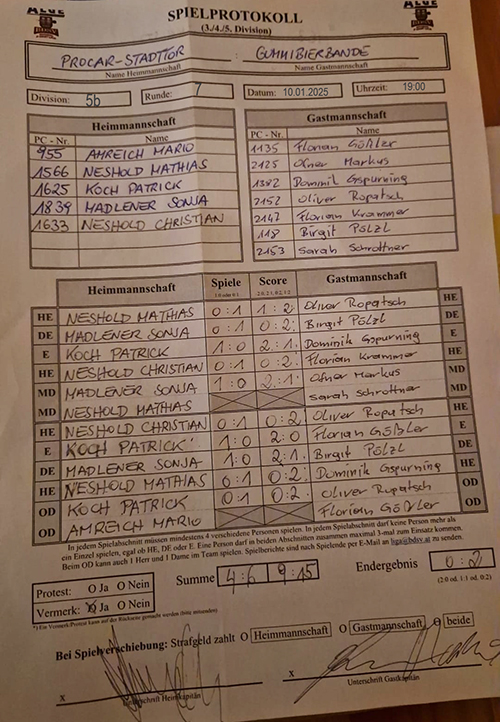 SPIELPROTOKOLL
(3./4./5. Division)
PROCAR-STADTTOR : GUMMIBIERBANDE
Name Heimmannschaft Name Gastmannschaft
Division: 5b Runde: 7 Datum: 10.01.2025 Uhrzeit: 19:00
Heimmannschaft Gastmannschaft
PC - Nr. Name PC - Nr. Name
955 AMREICH MARIO 1135 Florian Gößler
1566 NESHOLD MATHIAS 2125 Ofner Markus
1625 KOCH PATRICK 1382 Dominik Gspurning
1839 MADLENER SONJA 2152 Oliver Ropatsch
1633 NESHOLD CHRISTIAN 2147 Florian Krammer
118 Birgit Pölzl
2153 Sarah Schrottner
Heimmannschaft Spiele Score Gastmannschaft
1:0 oder 0:1 2:0, 2:1, 0:2, 1:2
HE NESHOLD MATHIAS 0:1 1:2 Oliver Ropatsch HE
DE MADLENER SONJA 0:1 0:2 Birgit Pölzl DE
E KOCH PATRICK 1:0 2:1 Dominik Gspurning E
HE NESHOLD CHRISTIAN 0:1 0:2 Florian Krammer HE
MD MADLENER SONJA 1:0 2:1 Ofner Markus MD
MD NESHOLD MATHIAS Sarah Schrottner MD
HE NESHOLD CHRISTIAN 0:1 0:2 Oliver Ropatsch HE
E KOCH PATRICK 1:0 2:0 Florian Gößler E
DE MADLENER SONJA 1:0 2:1 Birgit Pölzl DE
HE NESHOLD MATHIAS 0:1 0:2 Dominik Gspurning HE
OD KOCH PATRICK 0:1 0:2 Oliver Ropatsch OD
OD AMREICH MARIO Florian Gößler OD
In jedem Spielabschnitt müssen mindestens 4 verschiedene Personen spielen. In jedem Spielabschnitt darf keine Person mehr als
ein Einzel spielen, egal ob HE, DE oder E. Eine Person darf in beiden Abschnitten zusammen maximal 3-mal zum Einsatz kommen.
Beim OD kann auch 1 Herr und 1 Dame im Team spielen. Spielberichte sind nach Spielende per E-Mail an liga@bdsv.at zu senden.
Protest: O Ja O Nein Summe 4:6 9:15 Endergebnis 0:2
Vermerk: O Ja O Nein (2:0 od. 1:1 od. 0:2)
*) Ein Vermerk/Protest kann auf der Rückseite gemacht werden (bitte ankreuzen)
Bei Spielverschiebung: Strafgeld zahlt O Heimmannschaft O Gastmannschaft O beide
X X
Unterschrift Heimkapitän Unterschrift Gastkapitän